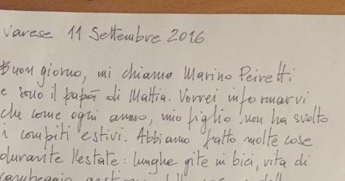 Varese 11 Settembre 2016
Buon giorno, mi chiamo Marino Peiretti
e sono il papà di Mattia. Vorrei informarvi
che come ogni anno, mio figlio non ha svolto
i compiti estivi. Abbiamo fatto molte cose
durante l'estate: lunghe gite in bici, vita di
campeggio